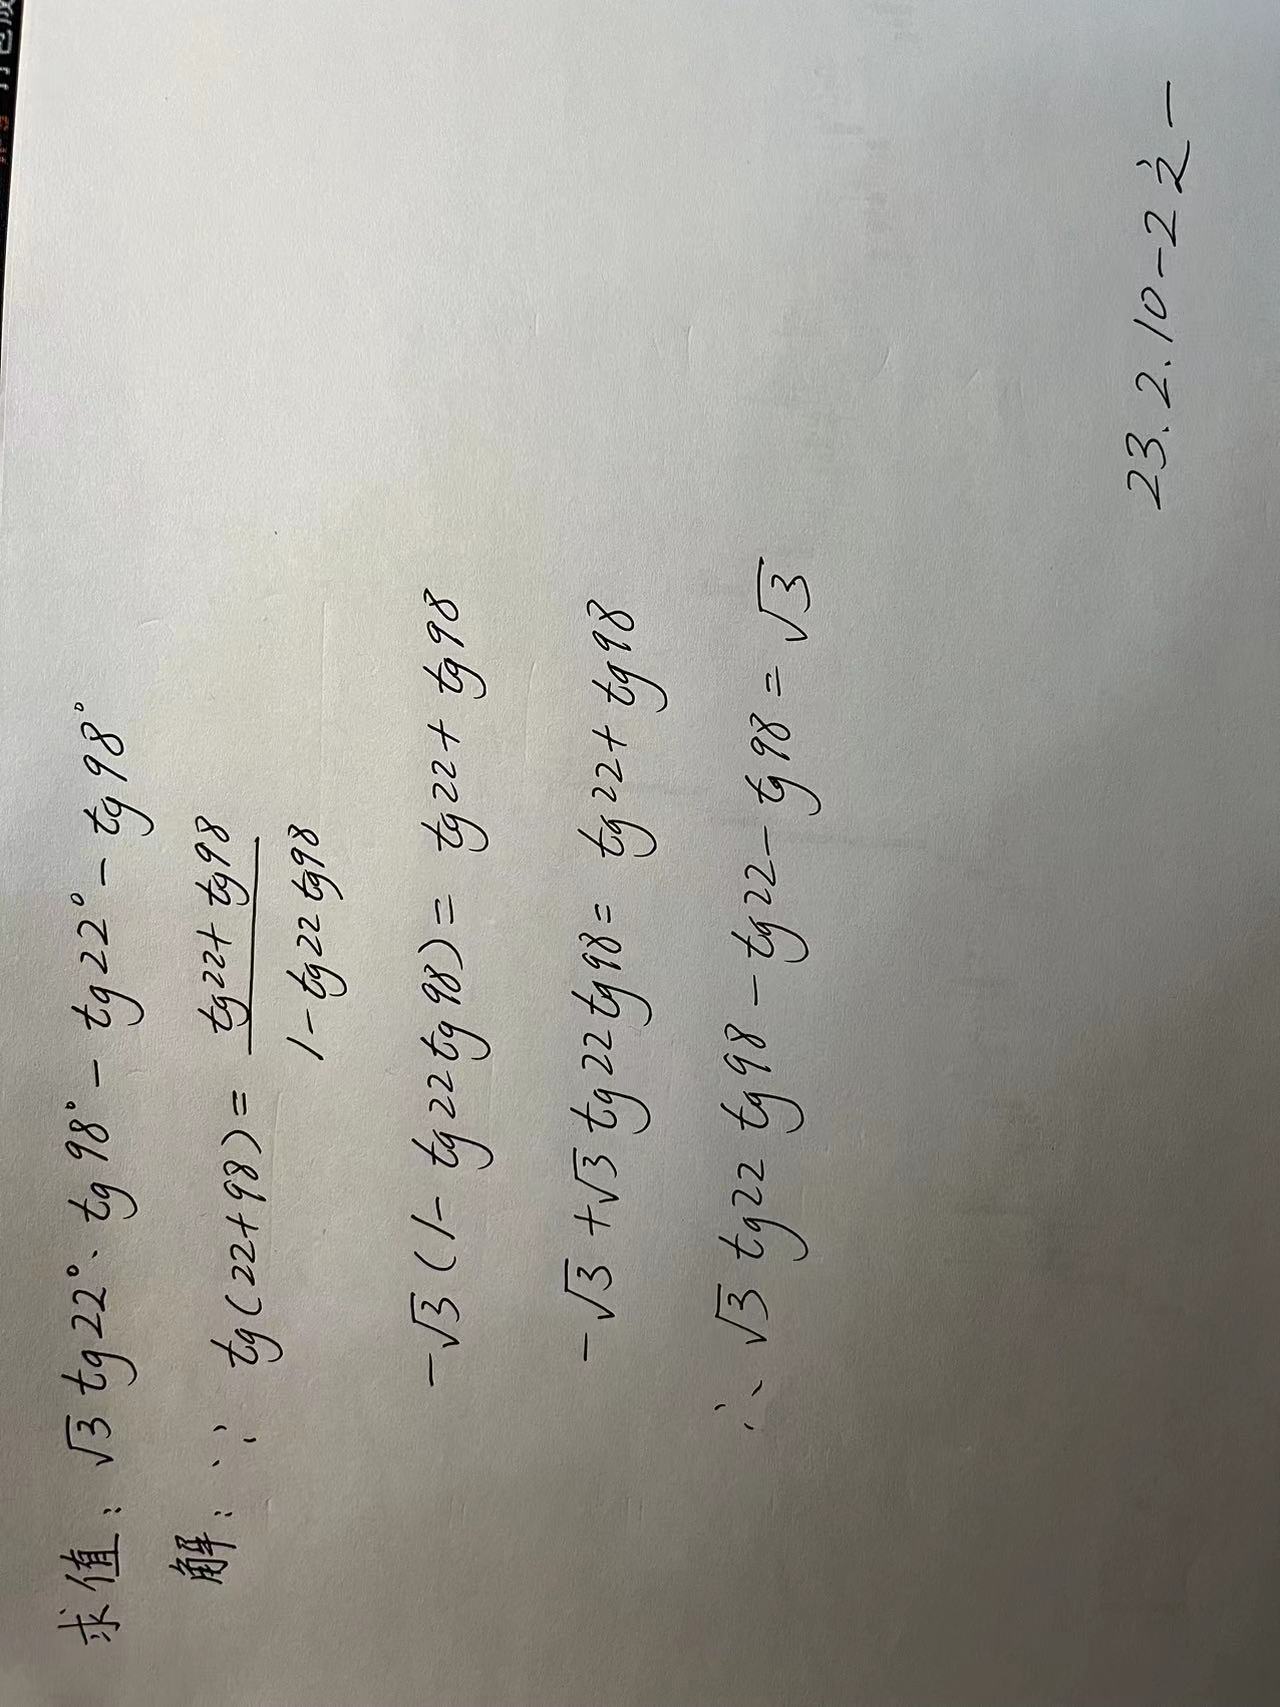 求值: √3 tg22°· tg98° - tg22° - tg98°
解: ∵ tg(22+98) = (tg22 + tg98)/(1 - tg22 tg98)
-√3 (1 - tg22 tg98) = tg22 + tg98
-√3 + √3 tg22 tg98 = tg22 + tg98
∴ √3 tg22 tg98 - tg22 - tg98 = √3
23.2.10-2之一